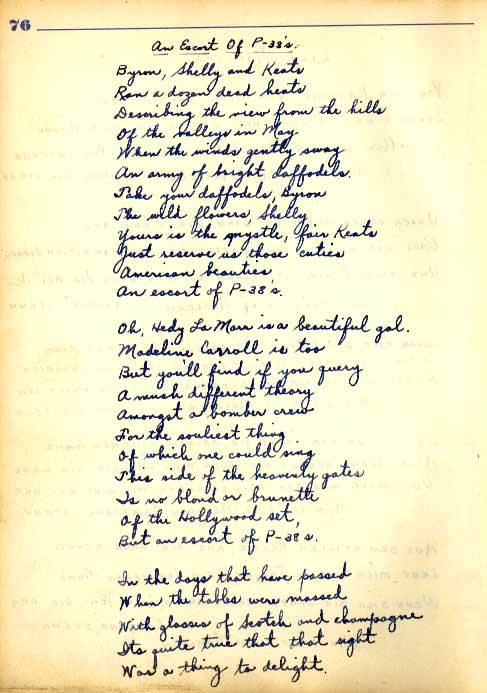 76
An Escort Of P-38's.
Byron, Shelly and Keats
Ran a dozen dead heats
Describing the view from the hills
Of the valleys in May
When the winds gently sway
An army of bright daffodels.
Take your daffodels, Byron
The wild flowers, Shelly
Yours is the myrtle, fair Keats
Just reserve us those cuties
American beauties
An escort of P-38's.
Oh, Hedy La Marr is a beautiful gal.
Madeline Carroll is too
But you'll find if you query
A much different theory
Amongst a bomber crew
For the souliest thing
Of which one could sing
This side of the heavenly gates
Is no blond or brunette
Of the Hollywood set,
But an escort of P-38's.
In the days that have passed
When the tables were massed
With glasses of Scotch and champagne
Its quite true that that sight
Was a thing to delight.